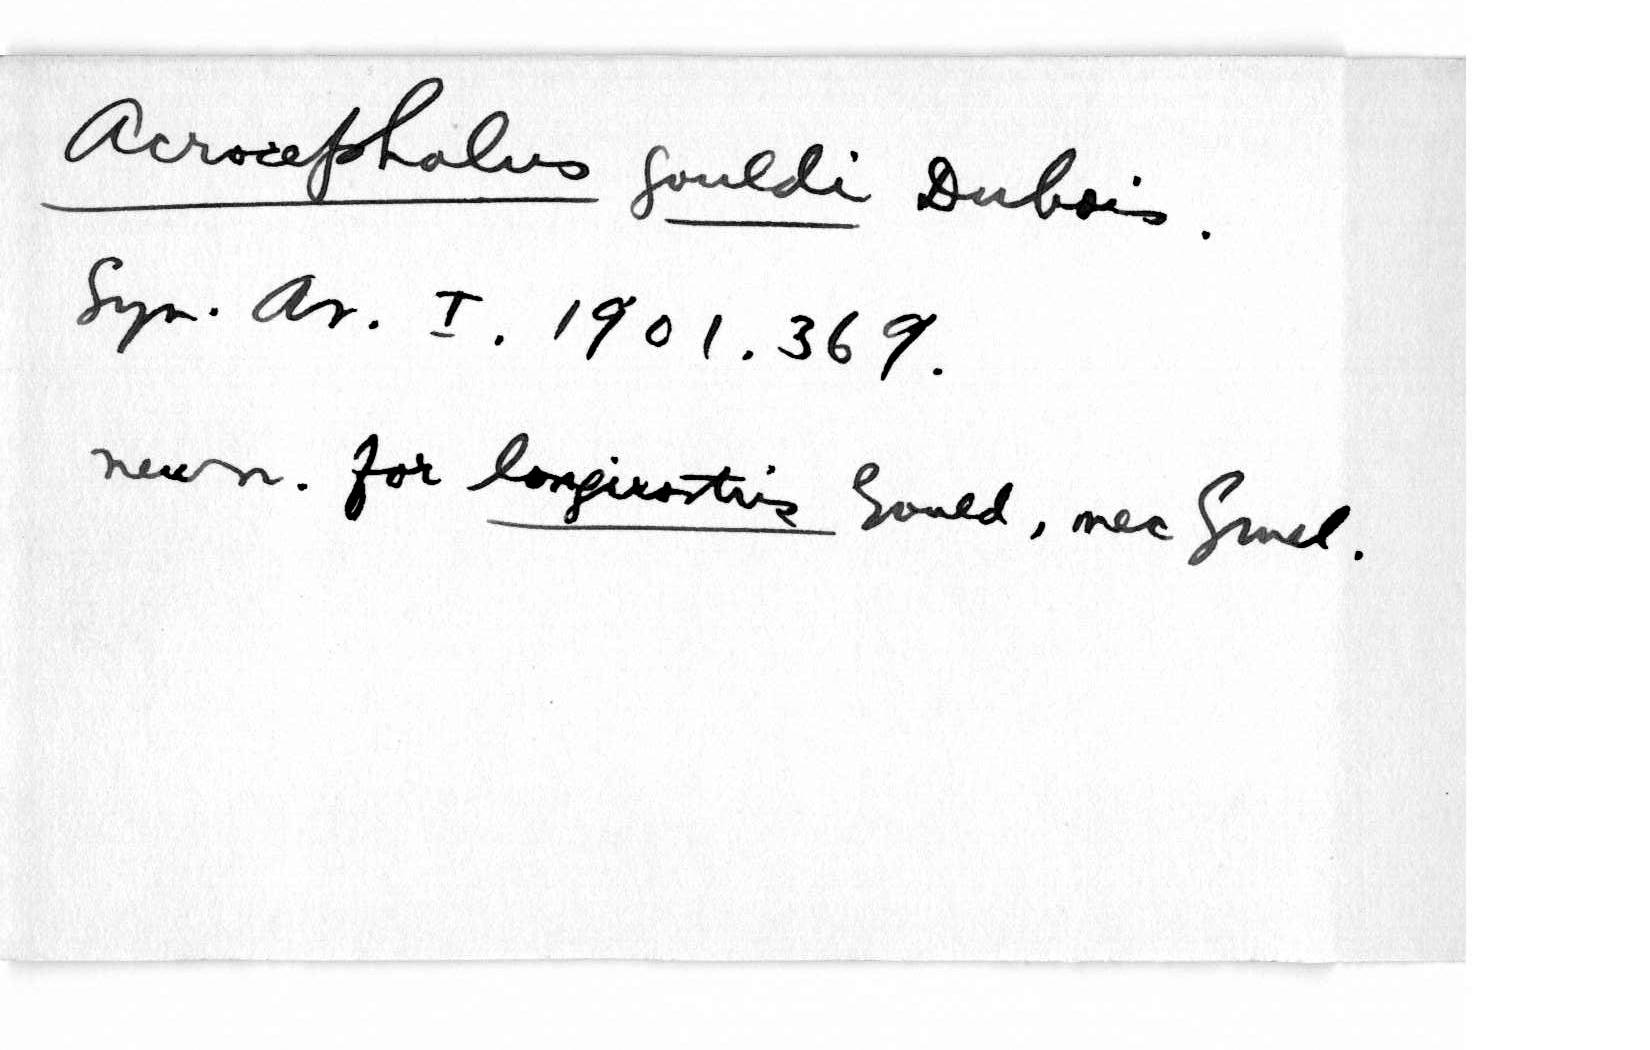 Acrocephalus gouldi Dubois.
Syn. Av. I. 1901. 369.
new n. for longirostris Gould, nec Gmel.